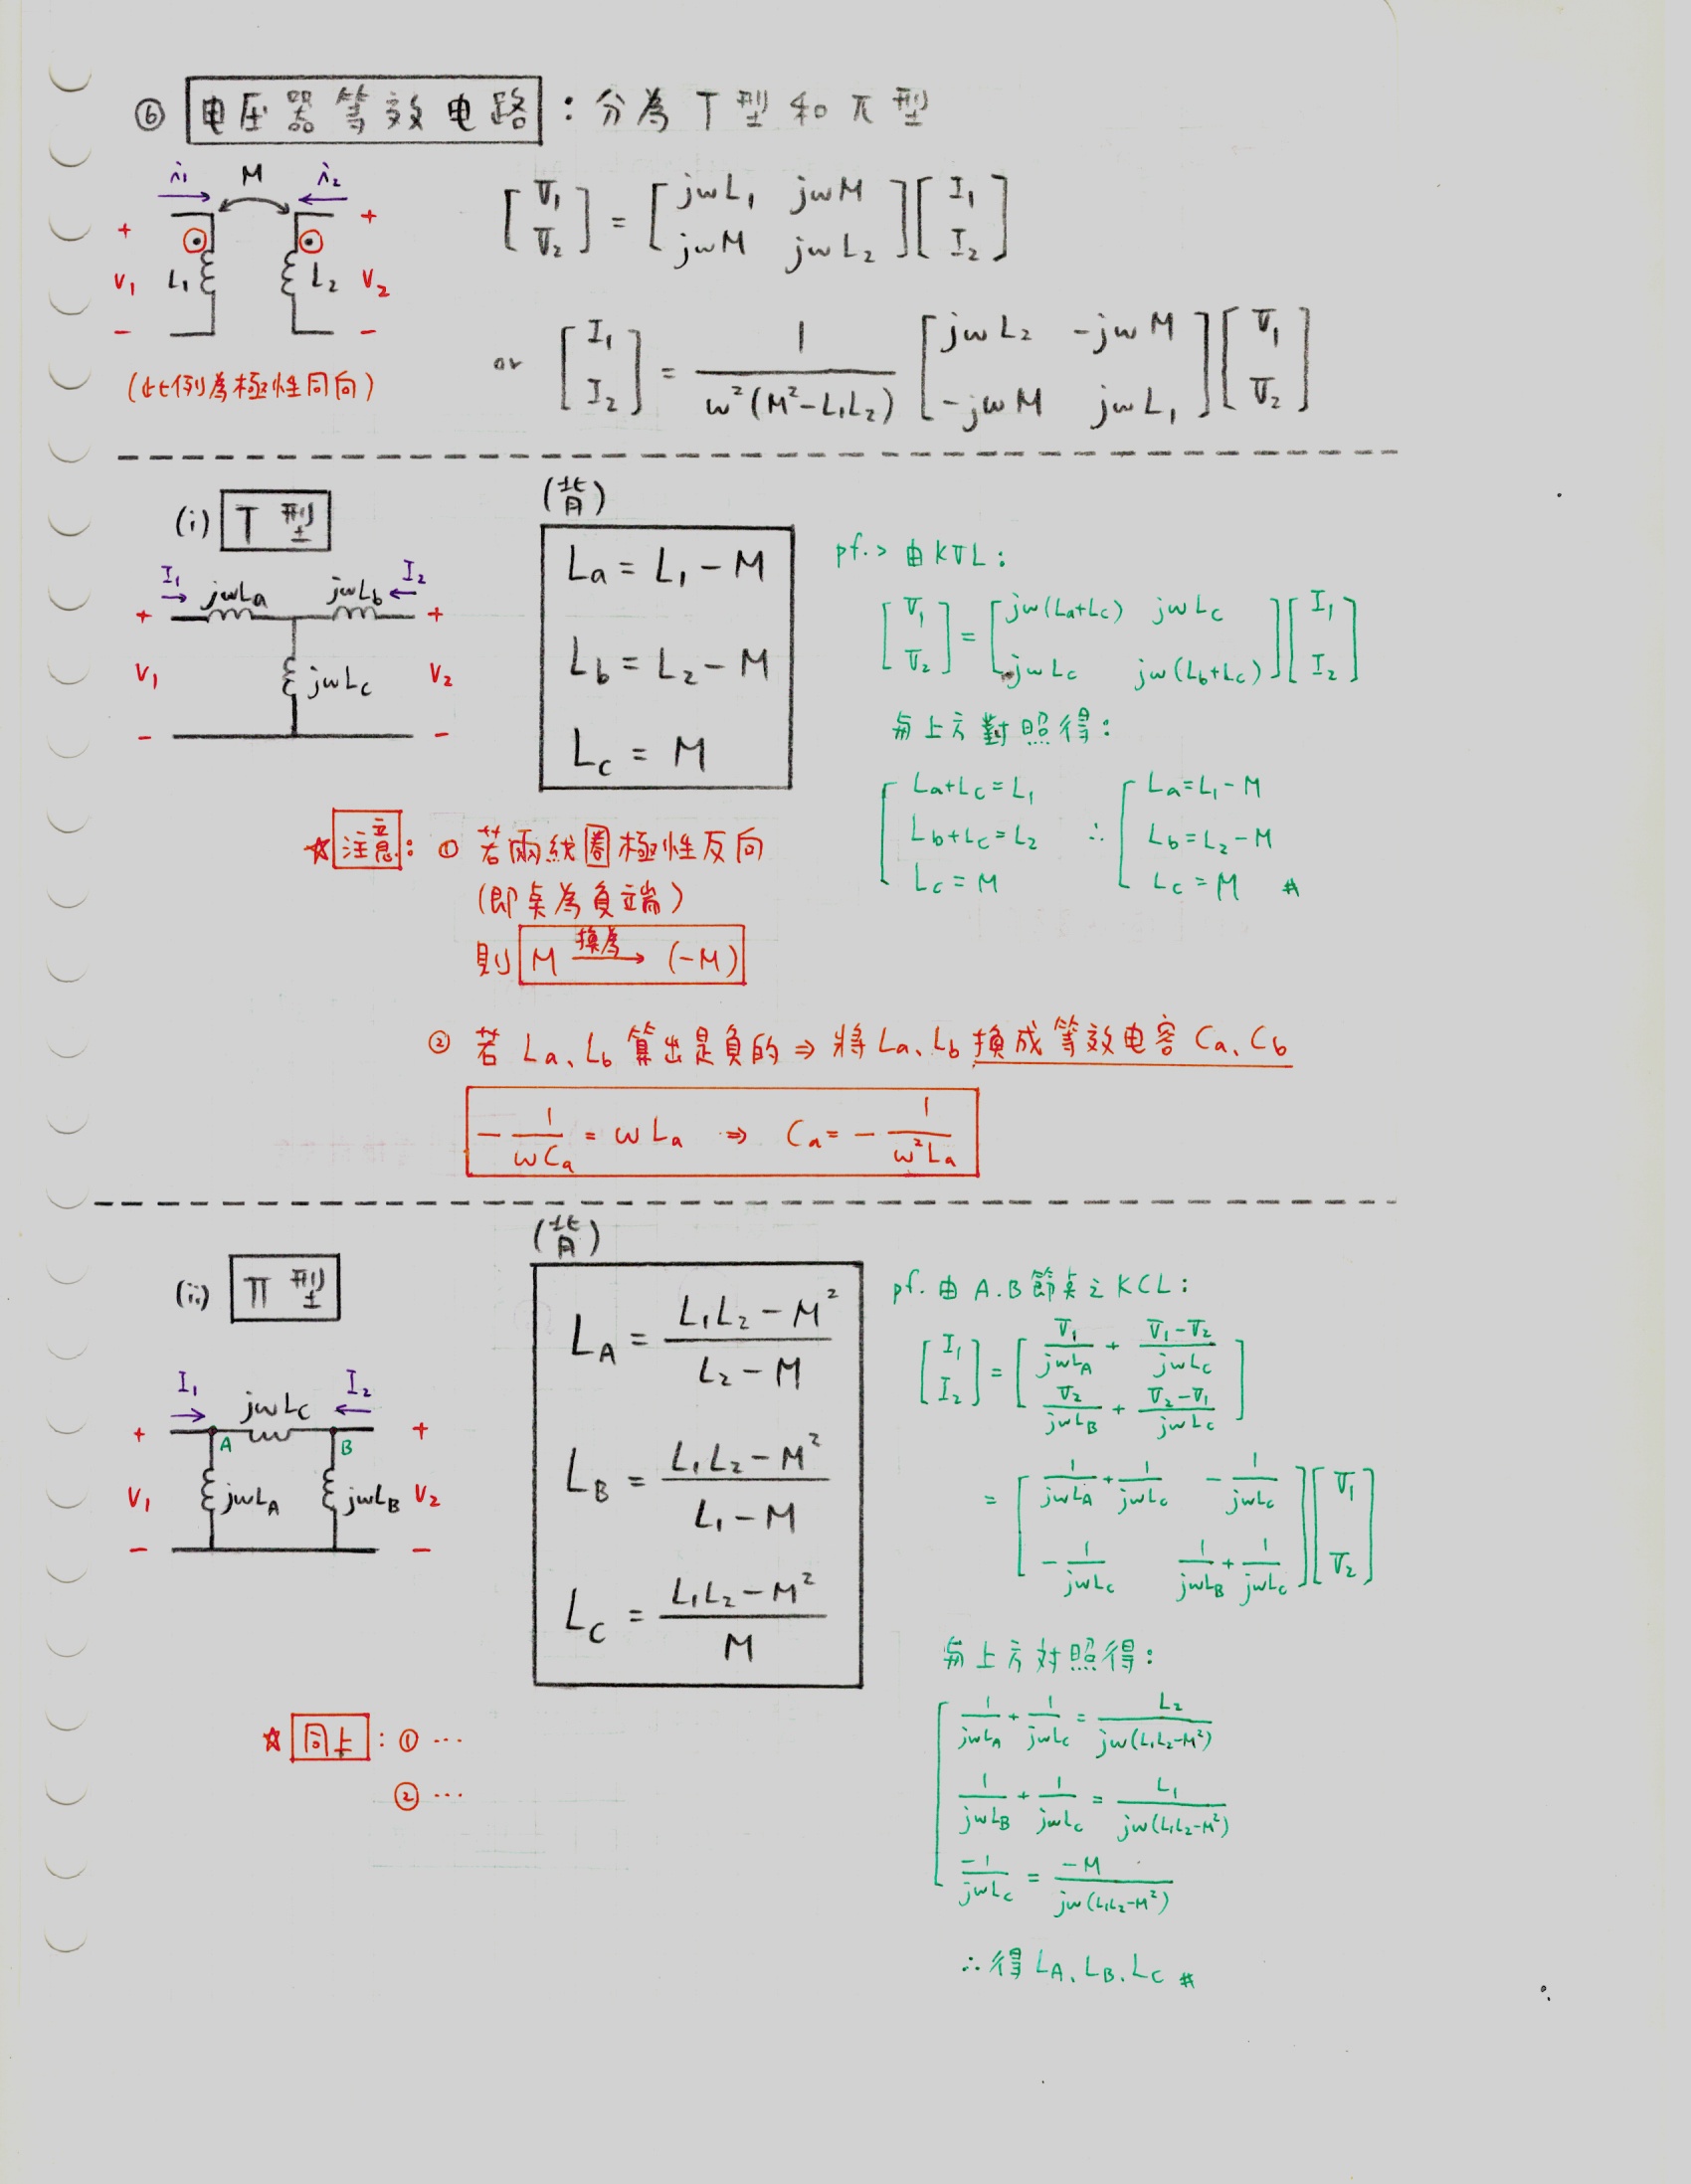 ⑥ 电压器等效电路：分為 T 型 和 π 型
i₁ M i₂
+ +
V₁ L₁ L₂ V₂
- -
(此例為極性同向)
[V₁ V₂] = [jωL₁ jωM jωM jωL₂][I₁ I₂]
or [I₁ I₂] = 1/ω²(M²-L₁L₂) [jωL₂ -jωM -jωM jωL₁][V₁ V₂]
(i) T 型
I₁ jωLa jωLb I₂
+ +
V₁ jωLc V₂
- -
(背)
La = L₁ - M
Lb = L₂ - M
Lc = M
pf.> 由 KVL：
[V₁ V₂] = [jω(La+Lc) jωLc jωLc jω(Lb+Lc)][I₁ I₂]
與上方對照得：
La+Lc=L₁
Lb+Lc=L₂
Lc=M
∴ La=L₁-M
Lb=L₂-M
Lc=M #
☆ 注意：① 若兩線圈極性反向
(即桌為負端)
則 M 換為→ (-M)
② 若 La、Lb 算出是負的 ⇒ 將 La、Lb 換成等效电容 Ca、Cb
-1/ωCa = ωLa ⇒ Ca = -1/ω²La
(ii) π 型
I₁ jωLc I₂
+ A B +
V₁ jωLA jωLB V₂
- -
(背)
LA = L₁L₂-M²/L₂-M
LB = L₁L₂-M²/L₁-M
LC = L₁L₂-M²/M
pf. 由 A.B 節桌之 KCL：
[I₁ I₂] = [V₁/jωLA + V₁-V₂/jωLC V₂/jωLB + V₂-V₁/jωLC]
= [1/jωLA+1/jωLc -1/jωLc -1/jωLc 1/jωLB+1/jωLc][V₁ V₂]
與上方对照得：
1/jωLA + 1/jωLc = L₂/jω(L₁L₂-M²)
1/jωLB + 1/jωLc = L₁/jω(L₁L₂-M²)
-1/jωLc = -M/jω(L₁L₂-M²)
∴ 得 LA、LB、LC #
☆ 同上：① …
② …